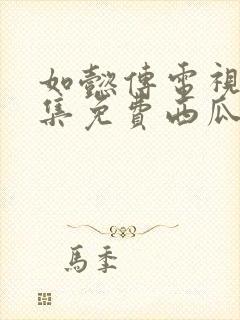 如懿傳電視
集免費西瓜
馬季